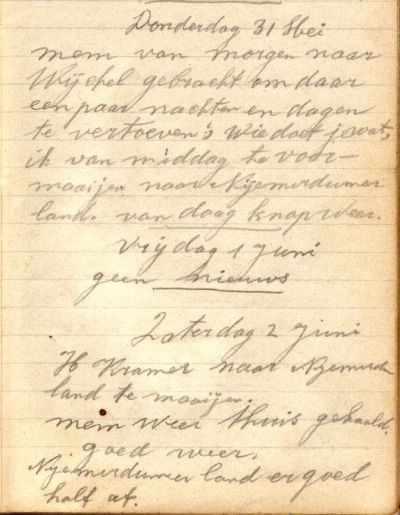 Donderdag 31 Mei
mem van morgen naar
Wijckel gebracht om daar
een paar nachten en dagen
te vertoeven;
ik van middag te voor-
maaijen naar Nijemirdumer
land. van daag knap weer.
Vrijdag 1 Juni
geen nieuws
Zaterdag 2 Juni
H Kramer naar
land te maaijen.
mem weer thuis gehaald.
goed weer.
Nijemirdumer land er goed
half af.